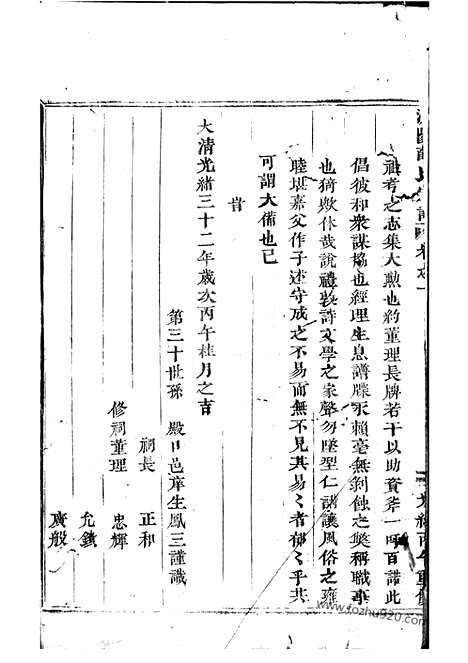 祖考之志集大勲也約董理長牌若干以助資斧一呼百諾此
倡彼和衆謀協也經理生息譜牒永賴毫無剝蝕之獎稱職事
也猗歟休哉說禮敦詩文學之家聲勿墜型仁講讓風俗之雍
睦堪嘉父作子述守成之不易而無不見其易〻者郁〻乎共
可謂大備也已
旹
大清光緒三十二年歲次丙午桂月之吉
第三十世孫 殿 邑庠生鳳三謹識
祠長 正和
修祠董理 忠輝
允鐵
廣般
光緒丙午重修
www.fozhu920.com